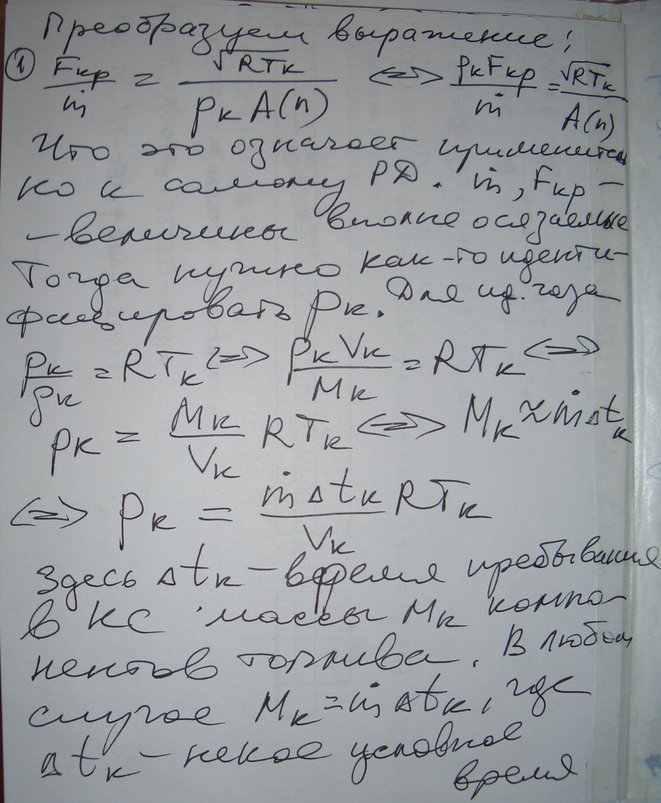 Преобразуем выражение:
① Fкр/ṁ = √RTк / (pк A(n)) <=> pк Fкр/ṁ = √RTк / A(n)
Что это означает применитель
но к самому РД. ṁ, Fкр –
– величины вполне осязаемые
Тогда нужно как-то иденти-
фицировать pк. Для ид. газа
pк/ρк = RTк <=> pк Vк/Mк = RTк <=>
pк = Mк/Vк RTк <=> Mк ≈ ṁ Δtк
<=> pк = ṁ Δtк/Vк RTк
здесь Δtк – время пребывания
в КС массы Mк компо-
нентов топлива. В любом
случае Mк = ṁ Δtк, где
Δtк – некое условное
время